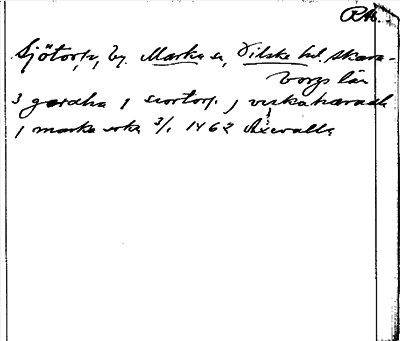 RAp.
Sjötorp, by. Marka sn, Vilske hd. Skara-
borgs län
3 gardha j siortorp j veskahæradh
j marka sokn 3/1 1462 Axevalla